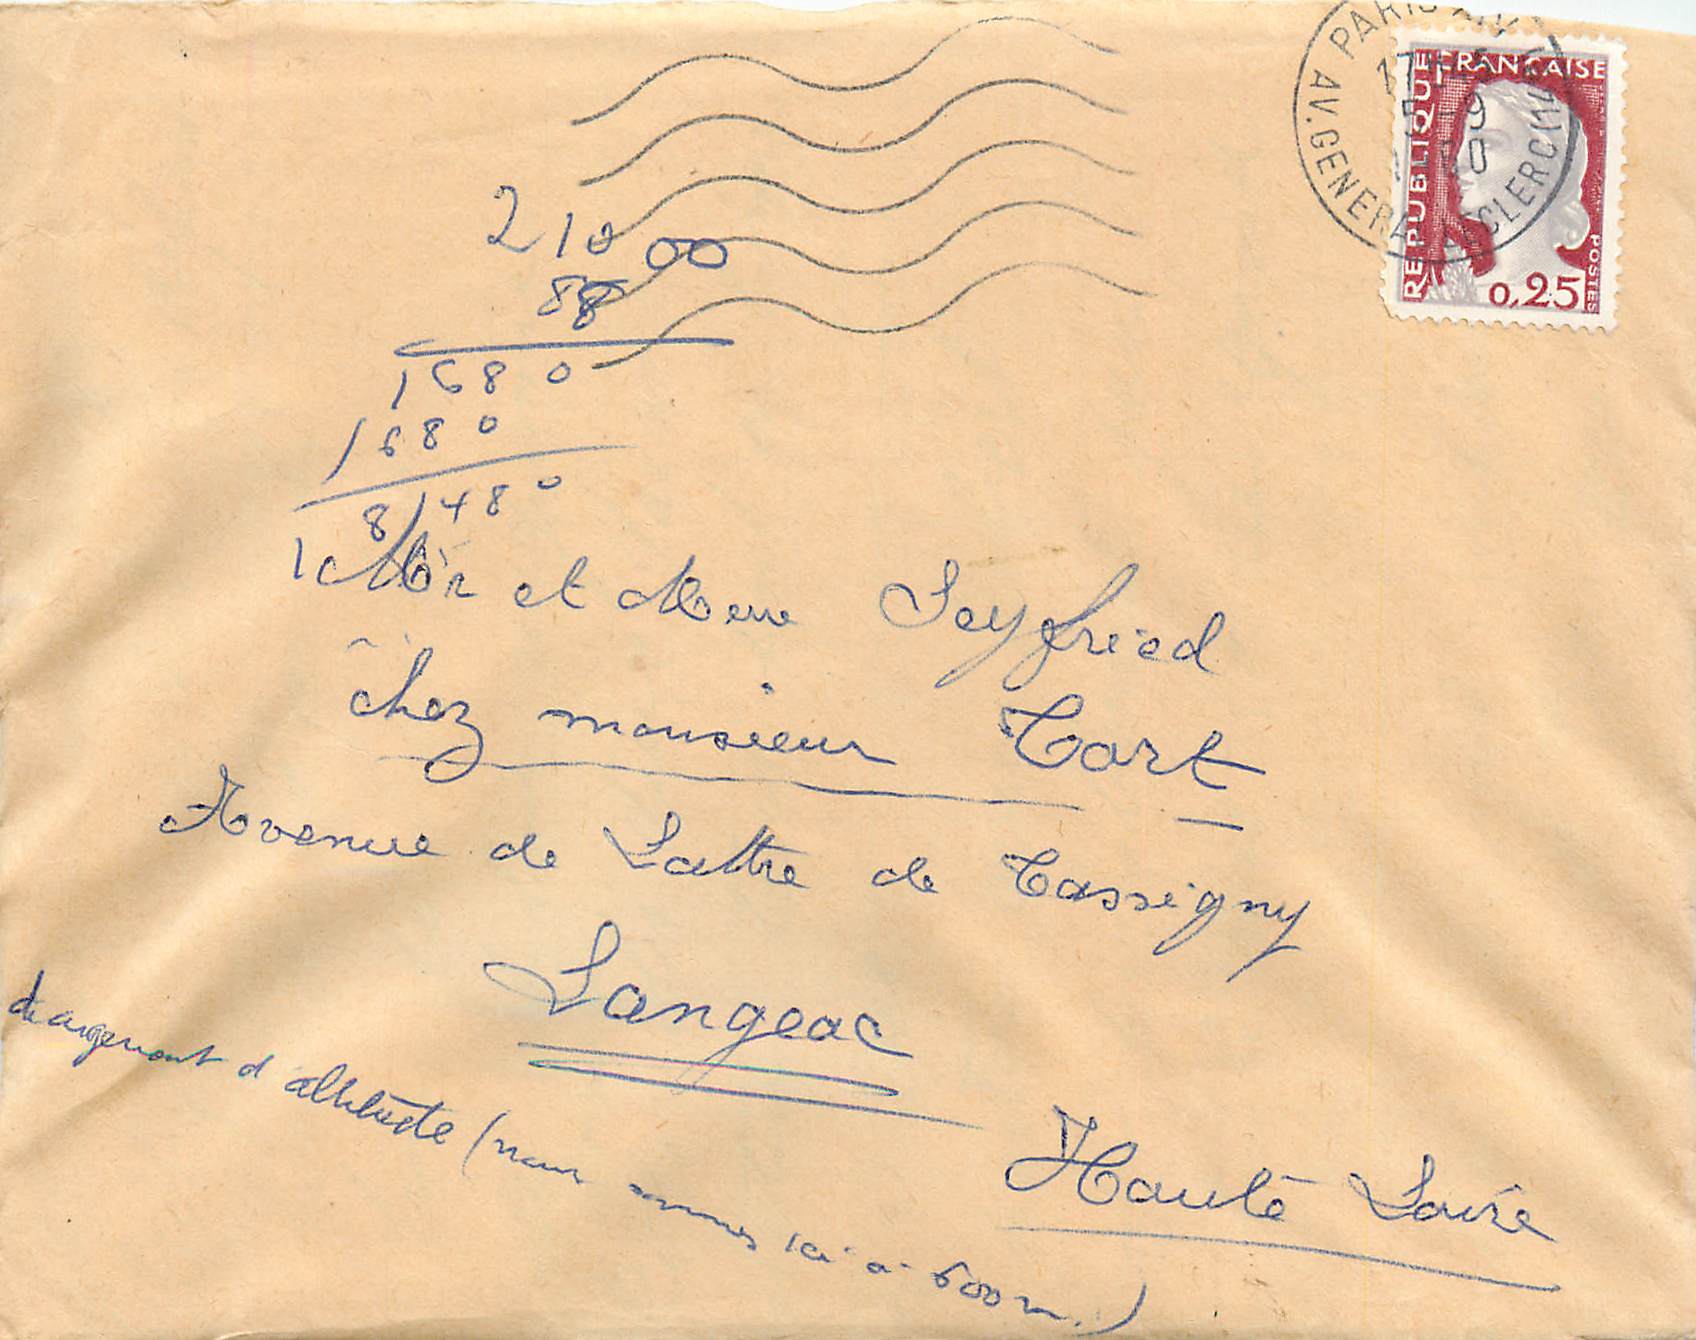 PARIS XIV
AV. GENERAL LECLERC (14E)
17H
5-9
REPUBLIQUE FRANCAISE
POSTES
0,25
210 00
88
1680
1680
18480
Mr et Mme Seyfried
chez monsieur Tort
Avenue de Lattre de Tassigny
Langeac
Haute Loire
changement d'altitude (nous sommes ici à 600 m.)